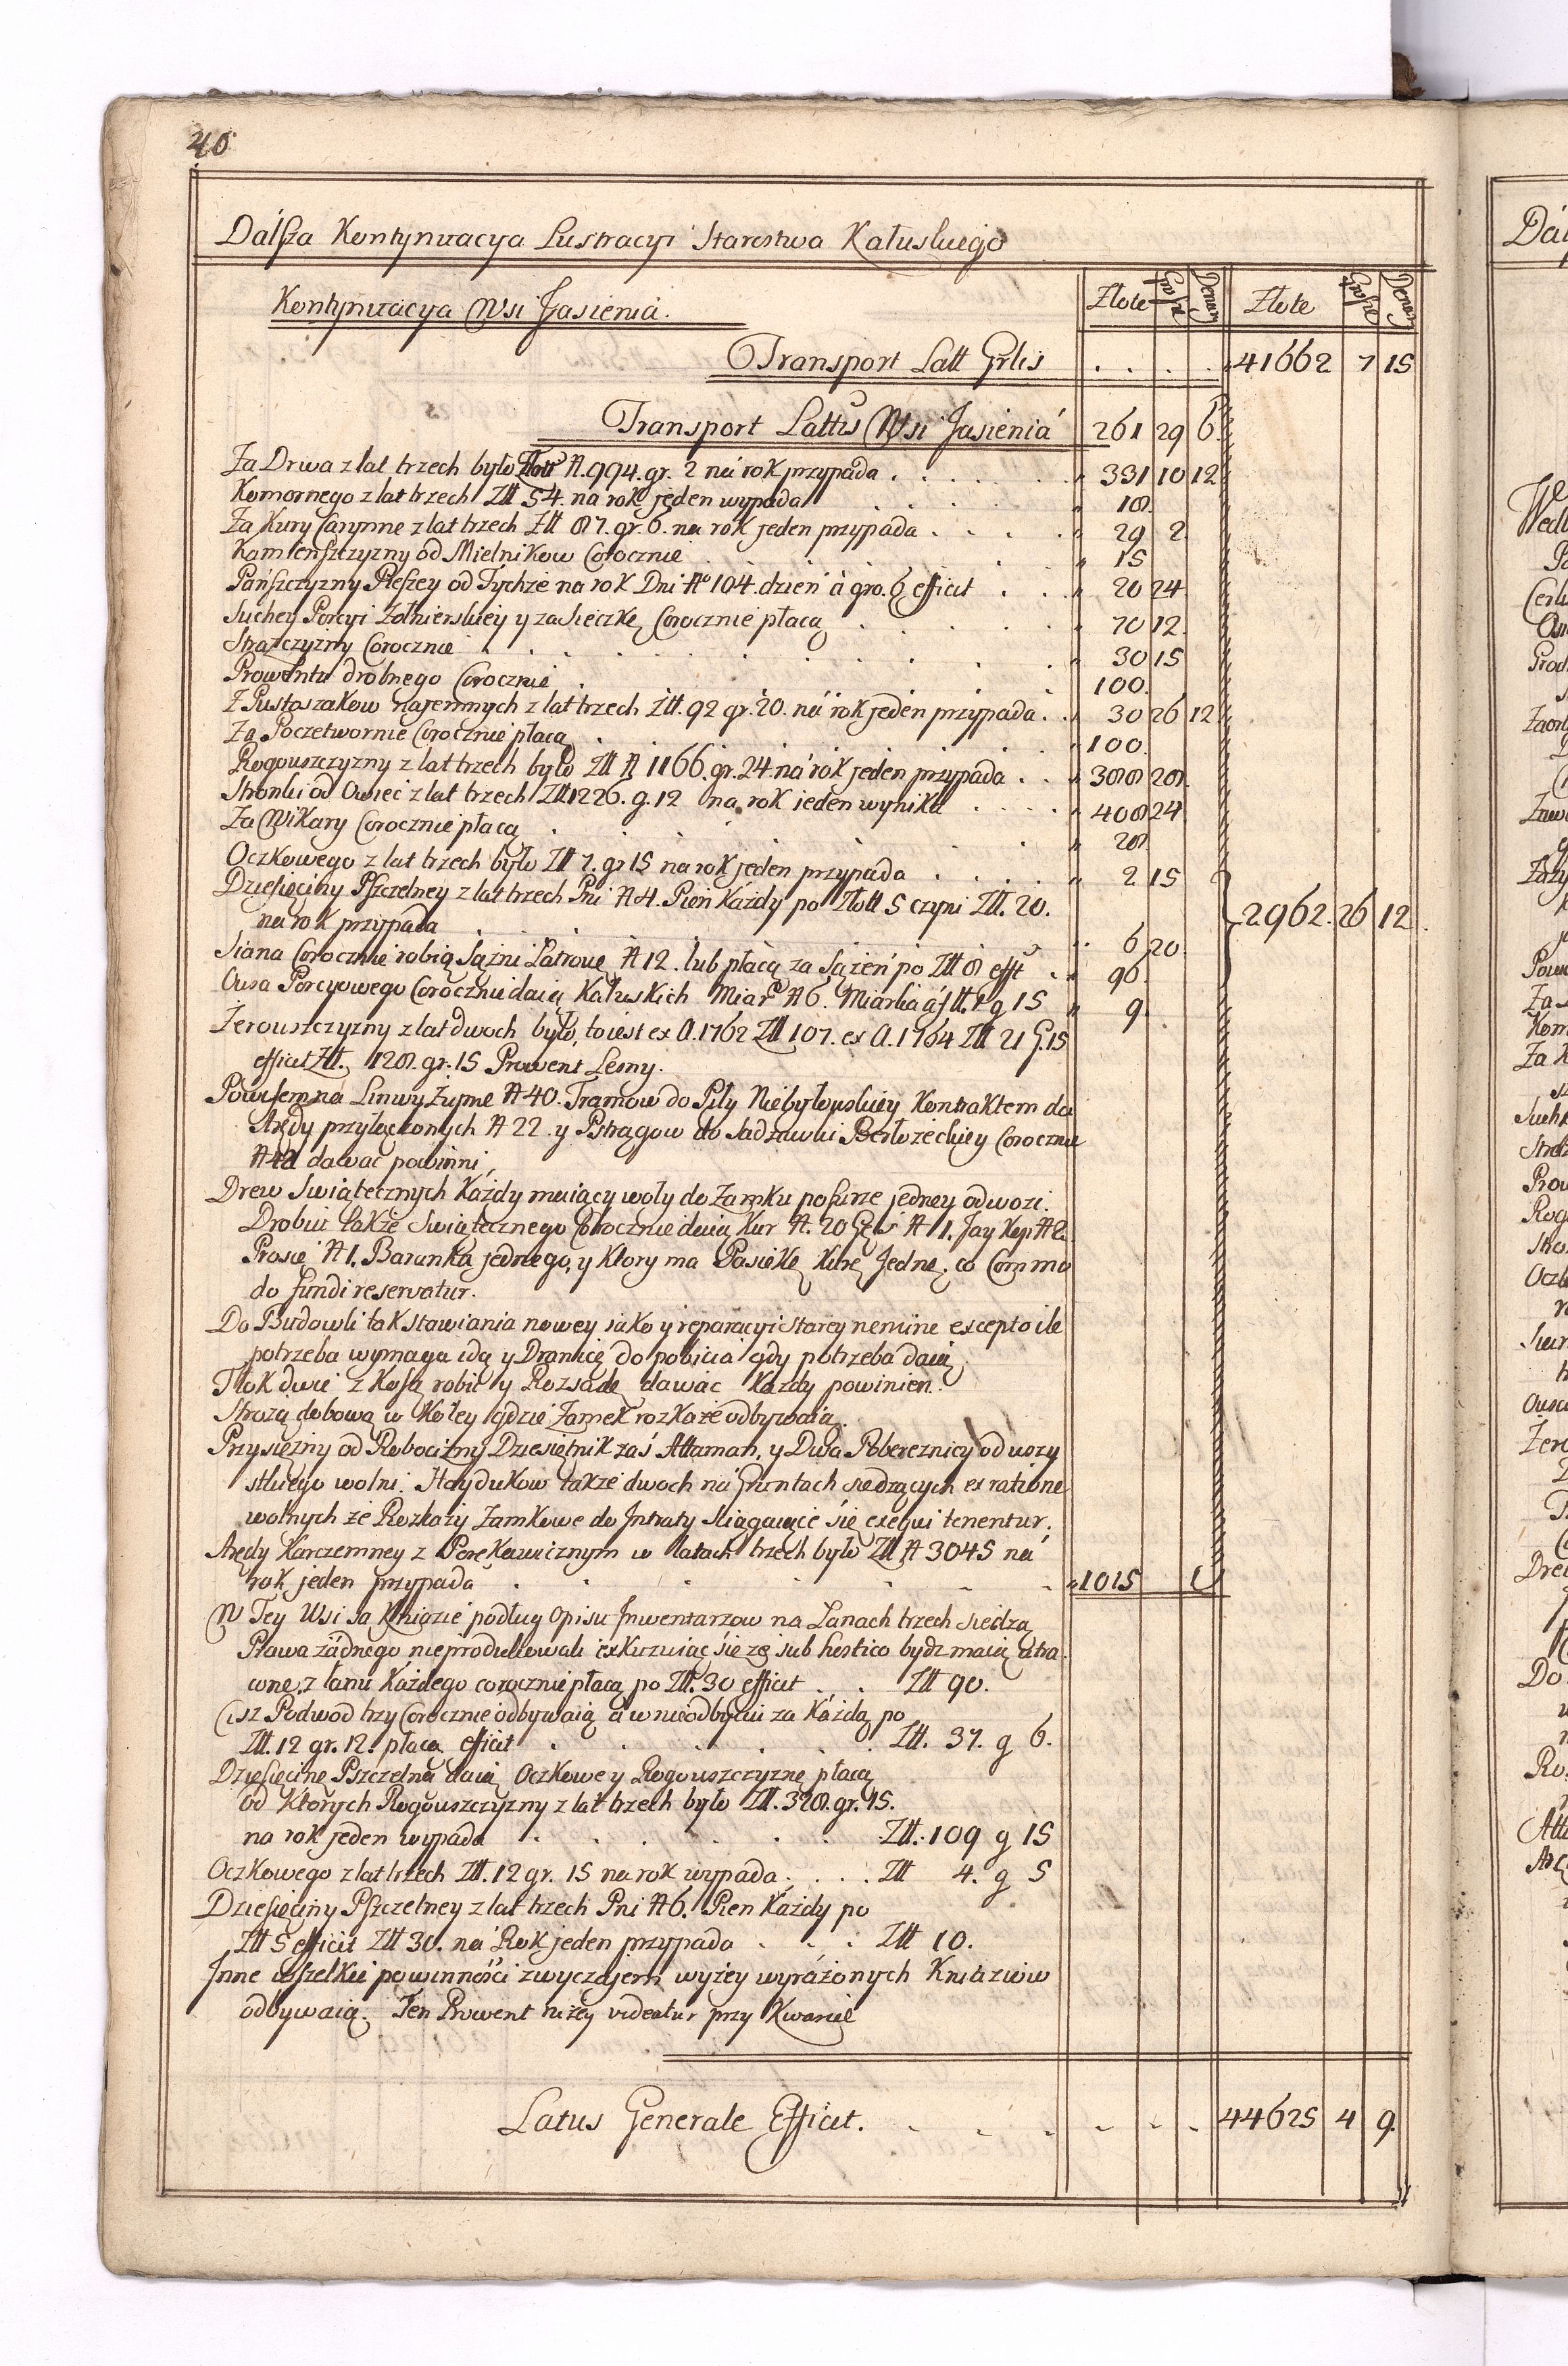 40
Dalsza Kontynuacya Lustracyi Starostwa Kałuskiego
Kontynuacya Wsi Jasienia. Złote Grosze Denar Złote Grosze Denar
Transport Latt Grlis . . . 41662 7 15
Transport Lattus Wsi Jasieniá 261 29 6
Za Drwa z lat trzech było Złott № 994. gr. 2 ná rok przypada . . . 331 10 12
Komornego z lat trzech Złt 54. na rok jeden wypada 18.
Za Kury Czynne z lat trzech Złt 87. gr. 6. na rok jeden przypada . . . 29 2
Kamienszczyzny od Mielnikow Corocznie 15
Pańszczyzny Pieszey od Tychże na rok Dni № 104. dzień á gro. 6 efficit . . 20 24
Suchey Porcyi Żołnierskiey y za Sieczkę Corocznie płacą . . . 70 12.
Strażczyzny Corocznie . . . 30 15
Prowentu drobnego Corocznie . 100.
Z Pustoszakow najemnych z lat trzech Złt. 92 gr. 20. ná rok jeden przypada . . 30 26 12
Za Poczetwornie Corocznie płacą . . . 100.
Rogouszczyzny z lat trzech było Złt № 1166. gr. 24. ná rok jeden przypada . . 388 28.
Stronki od Owiec z lat trzech Złt 1226. g. 12 na rok jeden wynika . . . 408 24
Za Wikary Corocznie płacą . . . 28
Oczkowego z lat trzech było Złt 7. gr 15 na rok jeden przypada . . . 2 15
Dziesięciny Pszczelney z lat trzech Pni № 4. Pień Każdy po Złott 5 czyni Złt. 20.
na rok przypada . . . 6 20 2962. 26 12.
Siana Corocznie robią Sążni Łatrowę № 12. lub płacą za Sążeń po Złt 8 efft . . 96
Owsa Porcyowego Corocznie daią Kałuskich Miar № 6. Miarka á złt. 1 g 15 9.
Zerouszczyzny z lat dwoch było, to iest ex A. 1762 Złt 107. ex A. 1764 Złt 21 g. 15
efficit Złt. 128. gr. 15 Prowent Leśny.
Powisem na Linwy Żupne № 40. Tramow do Piły Niebyłowskiey Kontraktem do
Arędy przyłączonych № 22. y Pstrągow do Sadzawki Berłozeckiey Corocznie
dawać powinni,
Drew Swiątecznych Każdy maiący woły do Zamku po furze jedney odwozi.
Drobiu także Swiątecznego Corocznie daią Kur №. 20 Gęś № 1. Jay Kop № 2.
Prosię № 1. Baranka jednego, y Ktory ma Pasiekę Kurę Jednę, co Commo
do fundi reservatur.
Do Budowli tak stawiania nowey iako y reparacyi starey nemine excepto ile
potrzeba wymaga idą y Dranicę do pobicia gdy potrzeba daią.
Tłok dwie z Kosą robić y Rozsadę dawac Każdy powinien.
Strożą dobową w Koley gdzie Zamek rozkaże odbywaią.
Przysiężny od Robocizny Dziesiętnik zaś Attaman, y Dwa Pobereznicy od wszy
stkiego wolni. Haydukow także dwoch ná Gruntach siedzących ex ratione
wolnych że Rozkazy Zamkowe do Intraty sciągaiące się exequi tenentur.
Arędy Karczemney z Perekawicznym w latach trzech było Złt № 3045 ná
rok jeden przypada . . . 1015
W Tey Wsi są Kniazie podług Opisu Inwentarzow na Łanach trzech siedzą
Prawa żadnego nieprodukowali exkuzuiąc się że sub hostico bydź maią utra
cone, z łanu Każdego corocznie płacą po Złt. 30 efficit . . Złt 90.
Ciż Podwod trzy Corocznie odbywaią á w nieodbyciu za Każdą po
Złt. 12 gr. 12. płacą efficit . . . Złt. 37. g 6.
Dziesięcinę Pszczelną daią Oczkowe y Rogouszczyznę płacą
od Ktorych Rogouszczyzny z lat trzech było Złt. 328. gr. 15.
na rok jeden wypada . . . Złt. 109 g 15
Oczkowego z lat trzech Złt. 12 gr. 15 na rok wypada . . . Złt 4. g 5
Dziesięciny Pszczelney z lat trzech Pni № 6. Pien Każdy po
Złt 5 efficit Złt 30. ná Rok jeden przypada . . . Złt 10.
Inne wszelkie powinności zwyczajem wyżey wyrażonych Kniaziow
odbywaią. Ten Prowent niżey videatur przy Kwarcie
Latus Generale Efficit. . . . 44625 4 9.